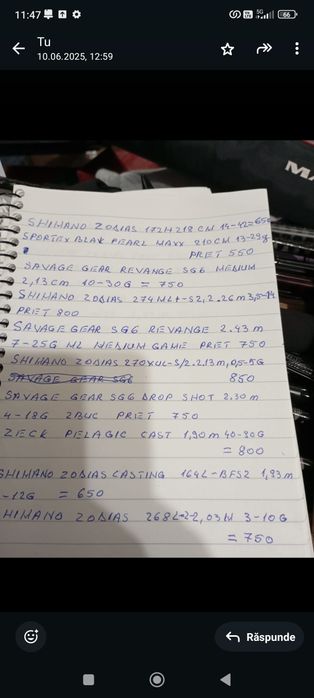 11:47
5G
66
Tu
10.06.2025, 12:59
MA
SHIMANO ZODIAS 172H 218 CM 14-42=650
SPORTEX BLAK PEARL MAXX 210CM 13-29g
PRET 550
SAVAGE GEAR REVANGE SG6 MEDIUM
2,13cm 10-30G = 750
SHIMANO ZODIAS 274ML+-S2, 2.26m 3,5-14
PRET 800
SAVAGE GEAR SG6 REVANGE 2.43 m
7-25G ML MEDIUM GAME PRET 750
SHIMANO ZODIAS 270XUL-S/2.2.13m, 0,5-5G
SAVAGE GEAR SG6 850
SAVAGE GEAR SG6 DROP SHOT 2.30 m
4-18G 2BUC PRET 750
ZECK PELAGIC CAST 1,90m 40-80G
= 800
SHIMANO ZODIAS CASTING 164L-BFS2 1,93m
-12G = 650
HIMANO ZODIAS 268L-2-2,03M 3-10G
= 750
Răspunde